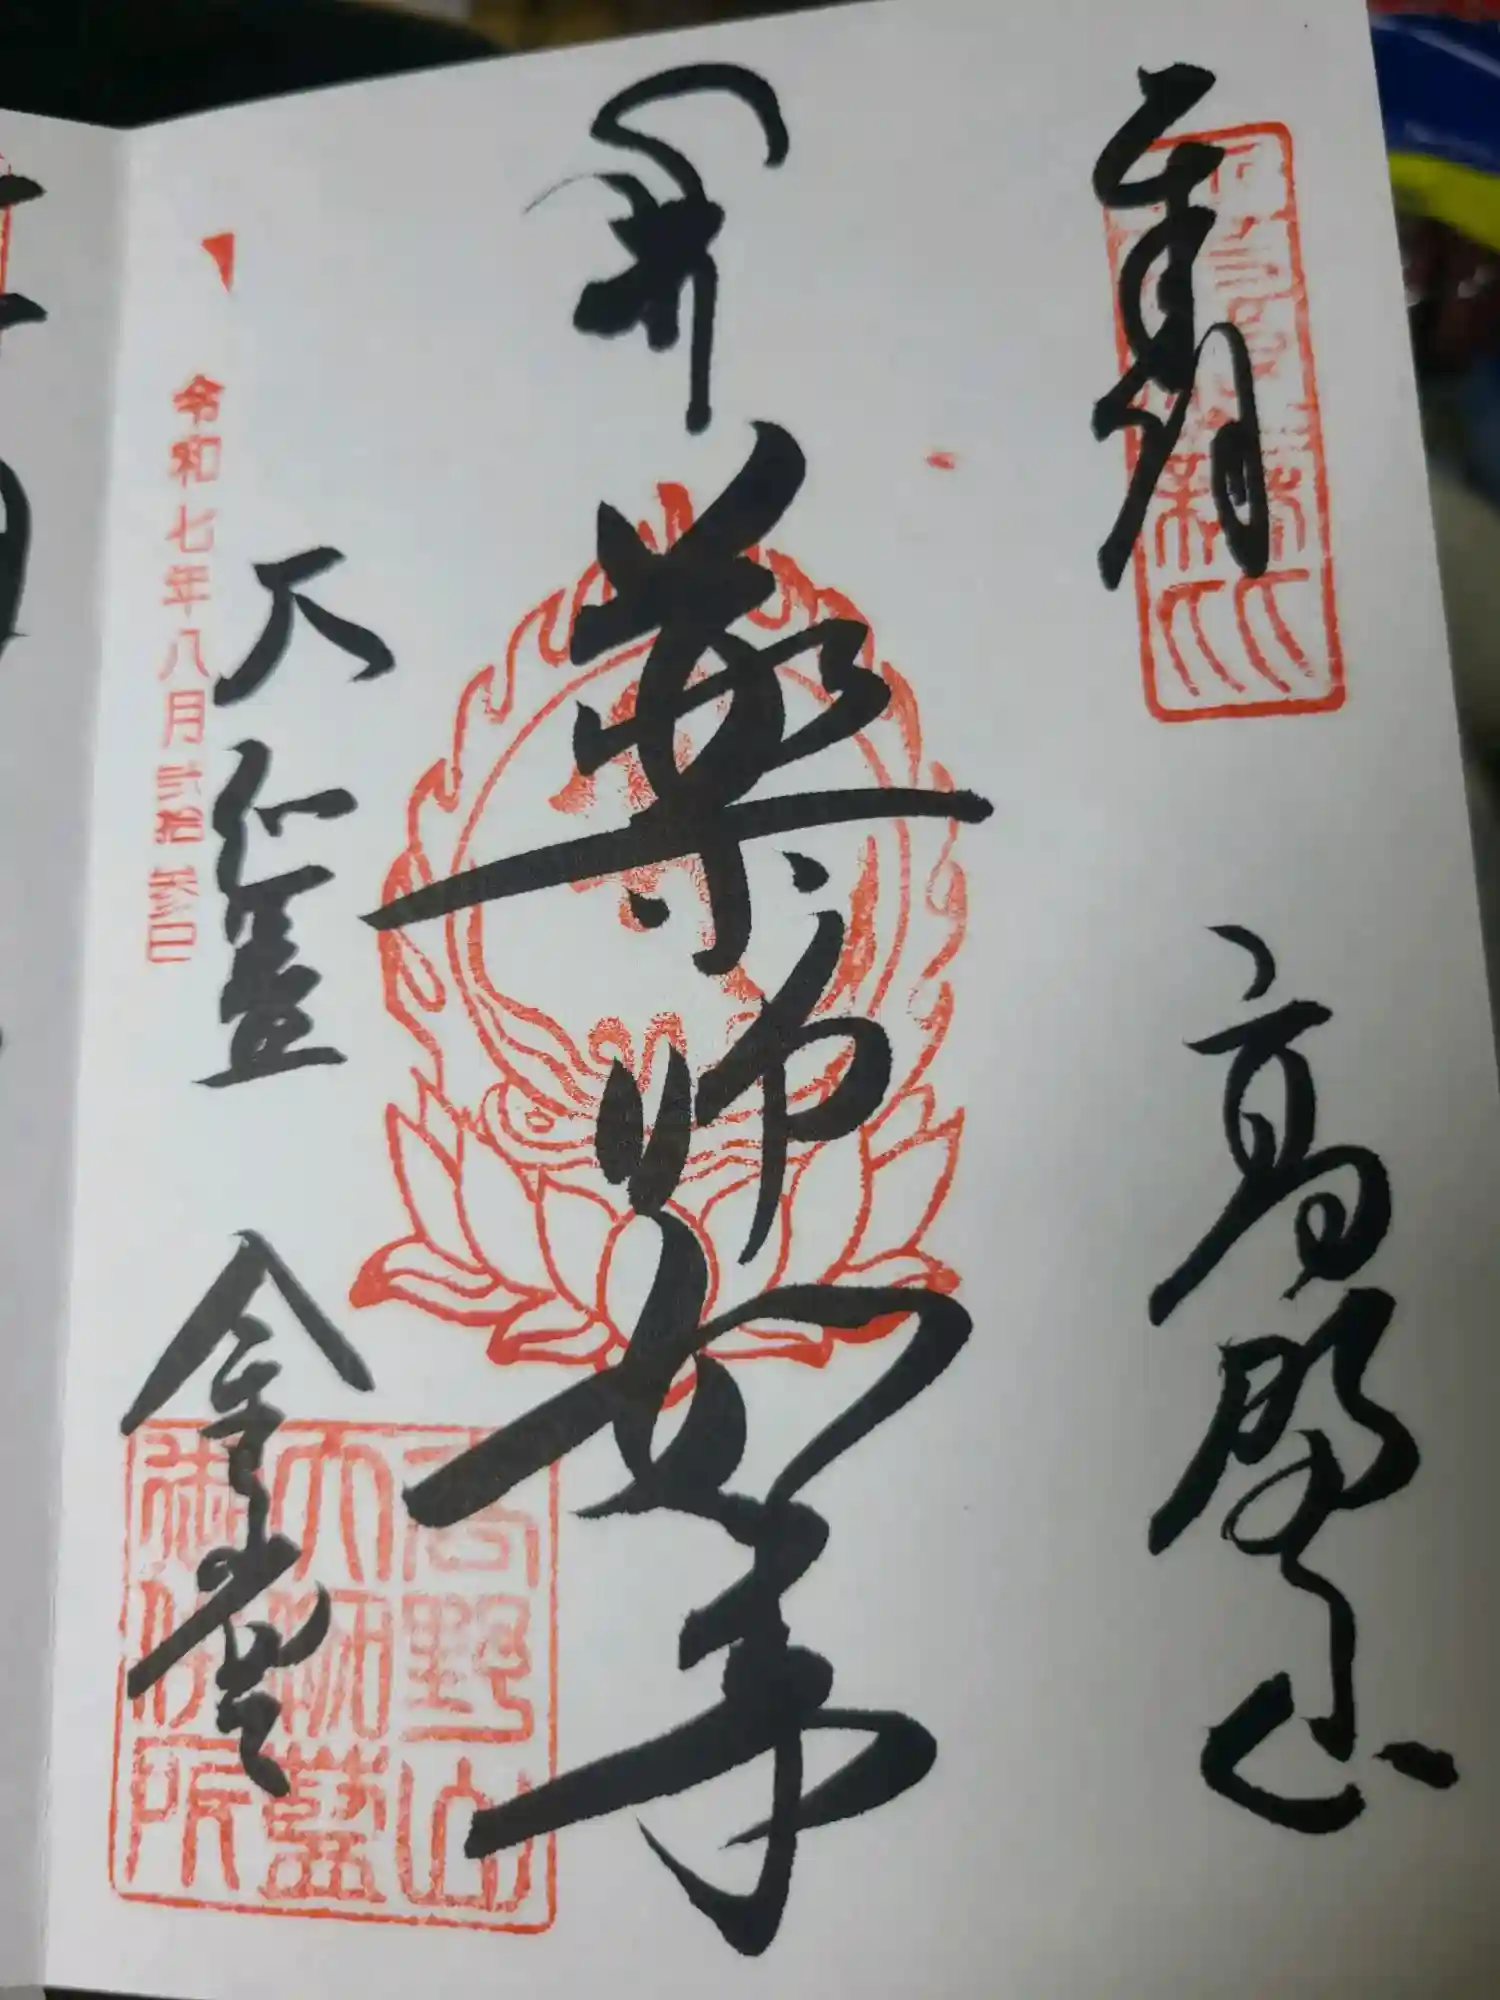 奉拝
高野山
薬師如来
大伽藍
金堂
令和七年八月弐拾参日
高野山
大伽藍
御供所